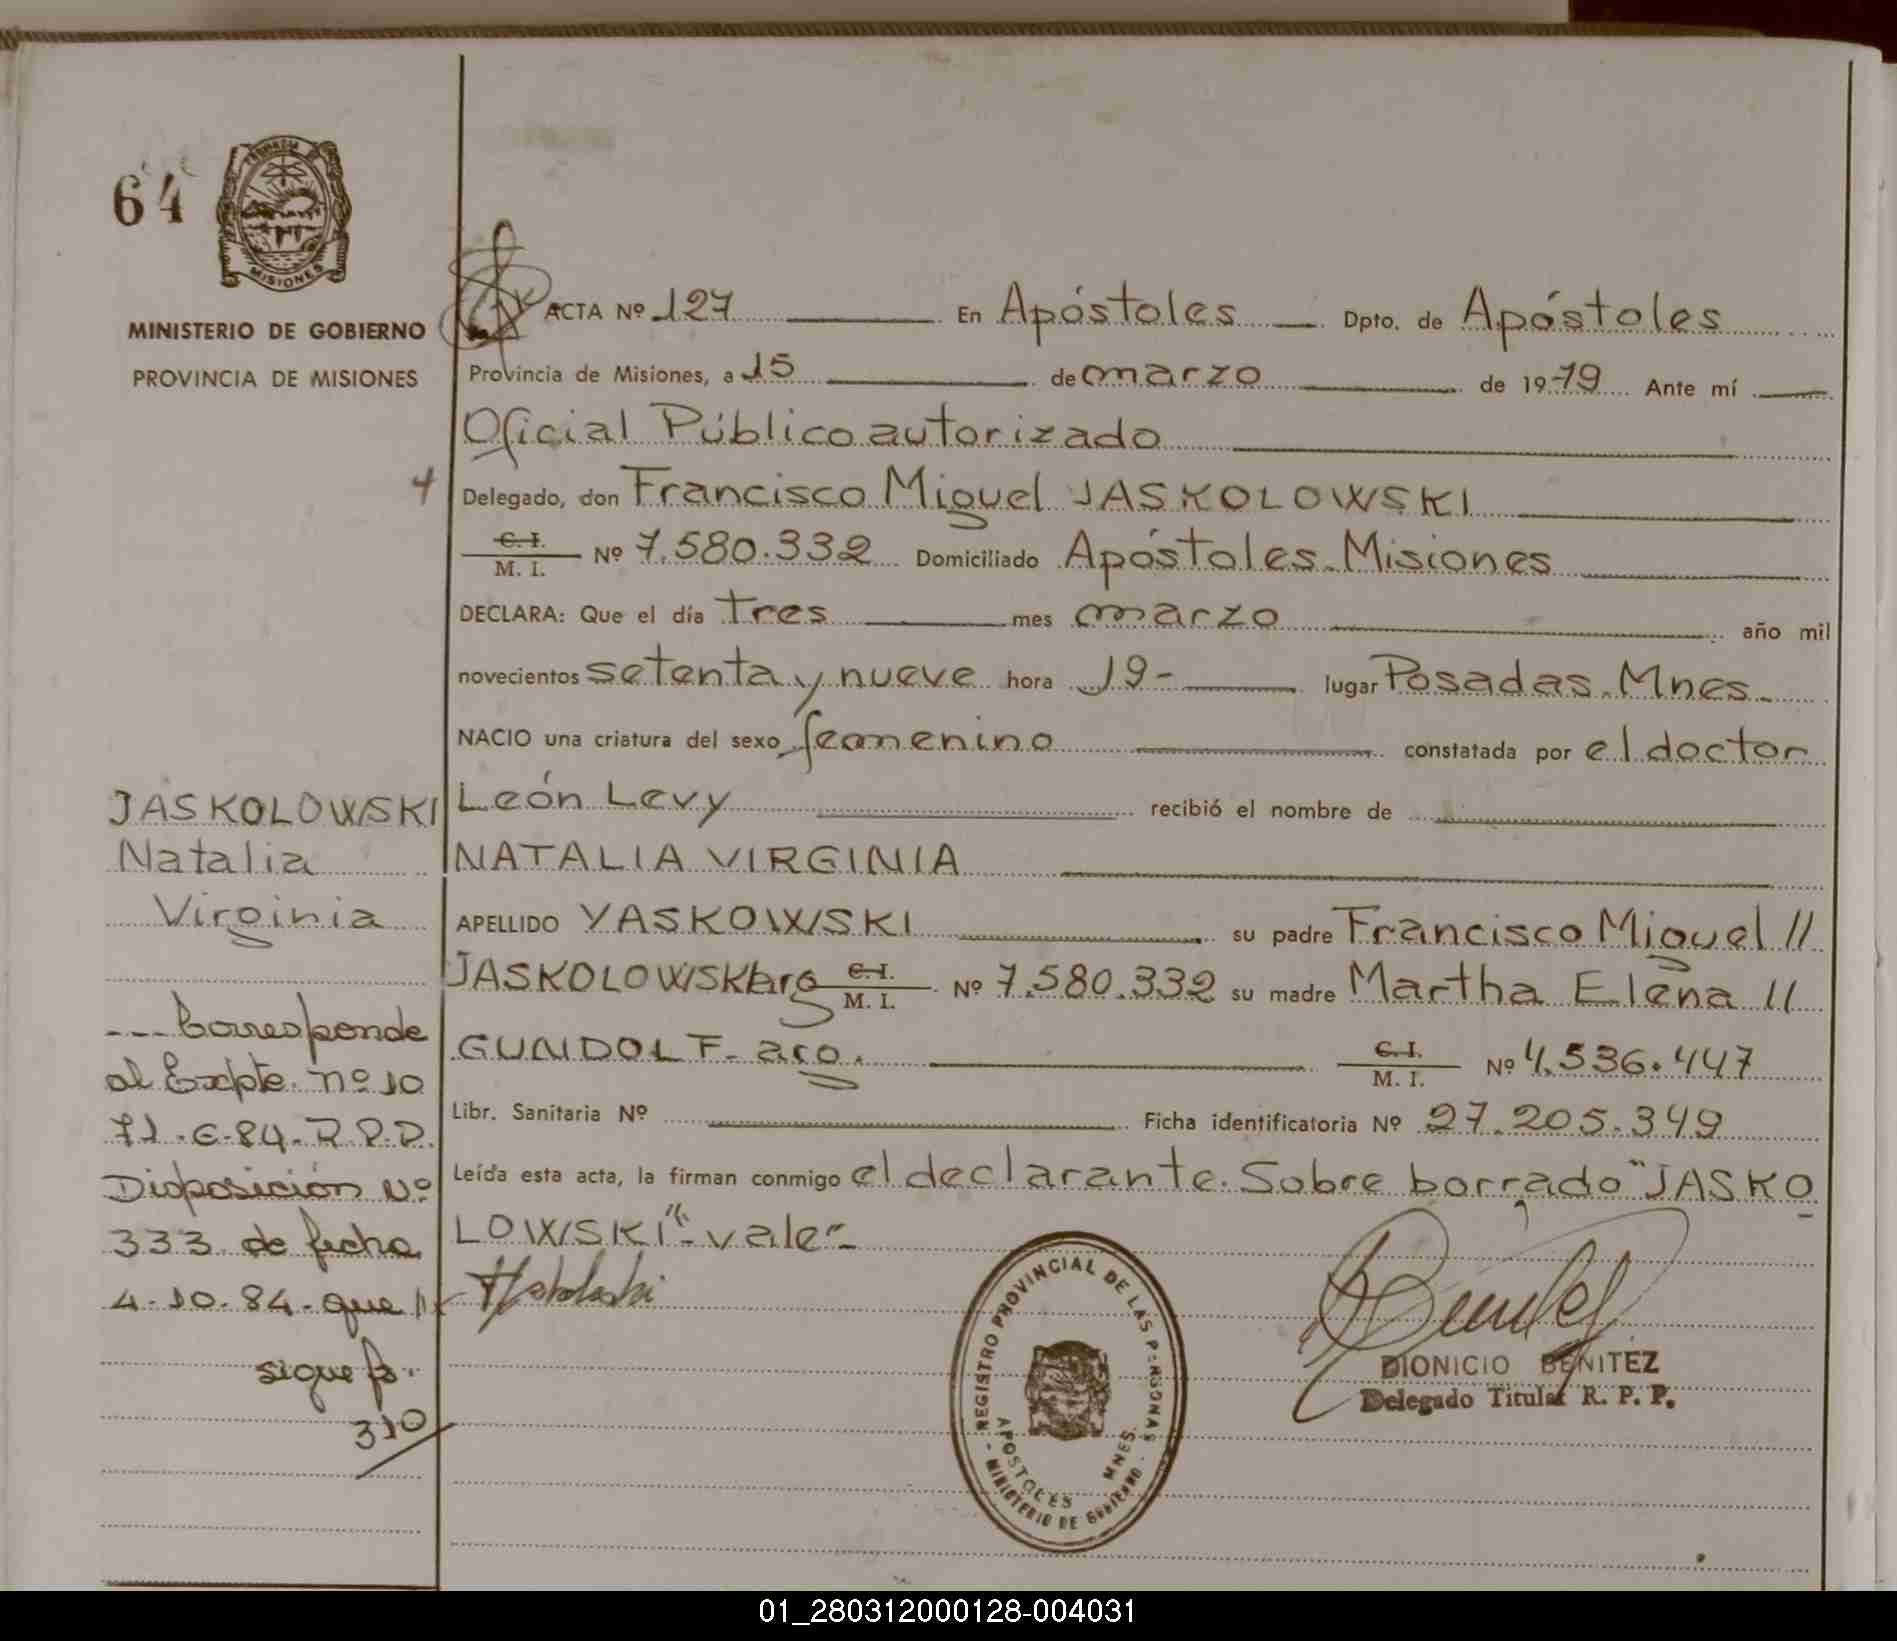 64
MISIONES
MINISTERIO DE GOBIERNO
PROVINCIA DE MISIONES
ACTA Nº 127 En Apóstoles Dpto. de Apóstoles
Provincia de Misiones, a 15 de marzo de 1979 Ante mí
Oficial Público autorizado
4
Delegado, don Francisco Miguel JASKOLOWSKI
C. I.
M. I. Nº 7.580.332 Domiciliado Apóstoles. Misiones
DECLARA: Que el día tres mes marzo año mil
novecientos setenta y nueve hora 19- lugar Posadas. Mnes.
NACIO una criatura del sexo femenino constatada por el doctor
León Levy recibió el nombre de
NATALIA VIRGINIA
APELLIDO YASKOWSKI su padre Francisco Miguel //
JASKOLOWSKI arg C. I. M. I. Nº 7.580.332 su madre Martha Elena //
GUNDOLF- arg. C. I. M. I. Nº 4.536.447
Libr. Sanitaria Nº Ficha identificatoria Nº 27.205.349
Leída esta acta, la firman conmigo el declarante. Sobre borrado "JASKO
LOWSKI"- vale-
JASKOLOWSKI
Natalia
Virginia
--- Corresponde
al Expte. nº 10
71-G-84-R.P.P.
Disposición Nº
333 de fecha
4-10-84- que //
sigue fs.
310
REGISTRO PROVINCIAL DE LAS PERSONAS
APOSTOLES MNES.
- MINISTERIO DE GOBIERNO -
DIONICIO BENITEZ
Delegado Titular R. P. P.
01_280312000128-004031